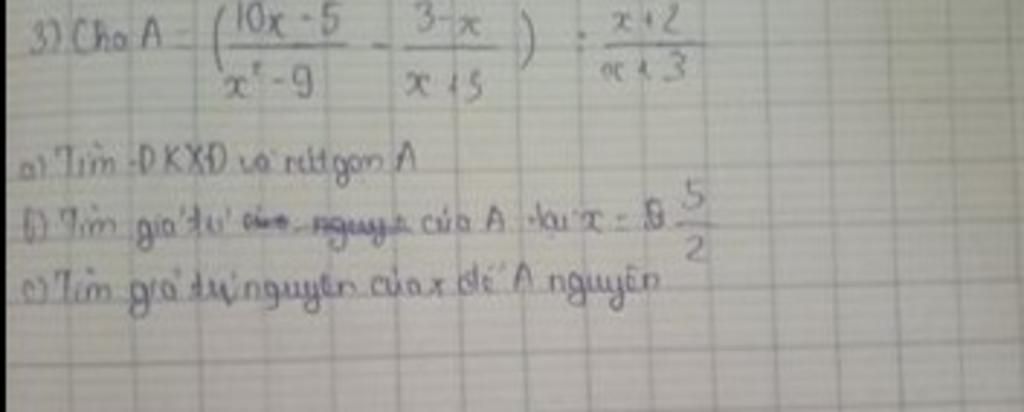 3) Cho A = (10x - 5 / x² - 9 - 3 - x / x + 3) : x + 2 / x + 3
a) Tìm ĐKXĐ và rút gọn A
b) Tìm giá trị của A tại x = 5/2
c) Tìm giá trị nguyên của x để A nguyên